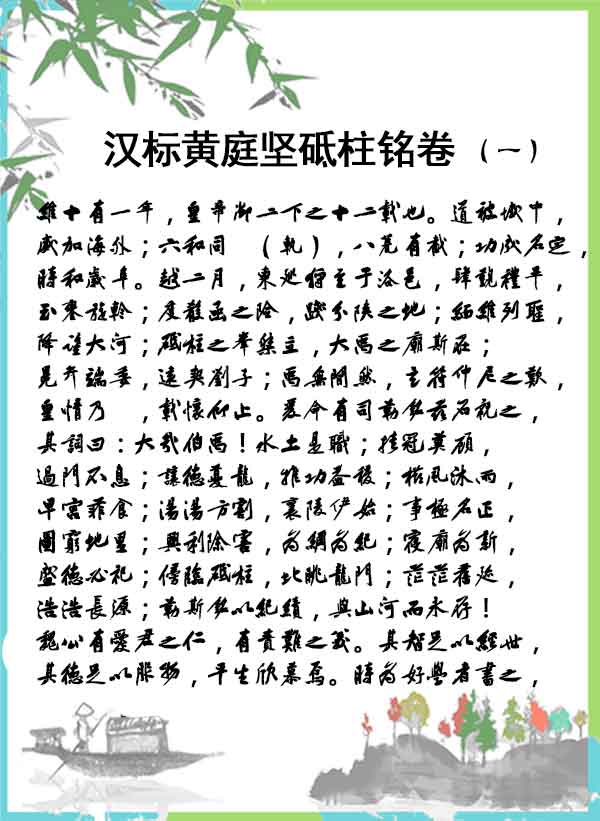 汉标黄庭坚砥柱铭卷（一）
維十有一年，皇帝御天下之十二載也。道被域中，
威加海外；六和同（軌），八荒有截；功成名定，
時和歲阜。越二月，東巡狩至于洛邑，肆覲禮畢，
玉來旋軫；度殽函之險，踐分陝之地；緬維列聖，
降望大河；砥柱之峯桀立，大禹之廟斯在；
晃弁端委，遠契劉子；禹無間然，玄符仲尼之歎，
皇情乃，載懷仰止。爰命有司勒銘茲石祝之，
其詞曰：大哉伯禹！水土是職；挂冠莫顧，
過門不息；讓德夔龍，推功益稷；櫛風沐雨，
卑宮菲食；湯湯方割，襄陵伊始；事極名正，
圖窮地里；興利除害，為綱為紀；寢廟為新，
盛德必祀；傍臨砥柱，北眺龍門；茫茫舊迹，
浩浩長源；勒斯銘以紀績，與山河而永存！
魏公有愛君之仁，有責難之義。其智足以經世，
其德足以服物，平生欣慕焉。時為好學者書之，